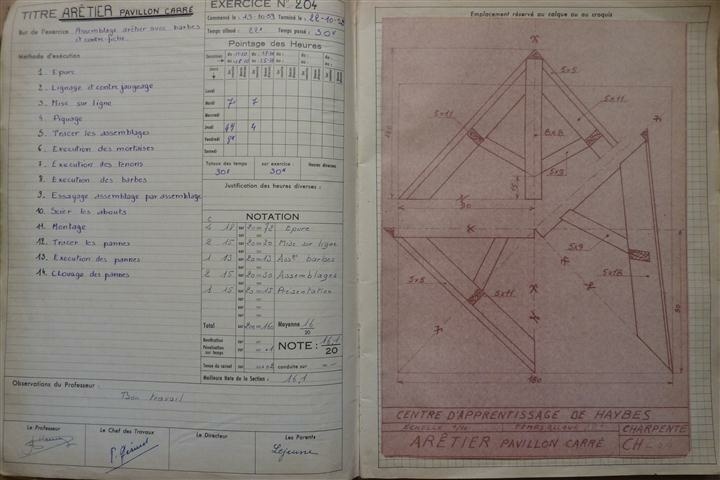 TITRE ARÊTIER PAVILLON CARRÉ
But de l'exercice Assemblage arêtier avec barbes
et contre-fiche
Méthode d'exécution
1. Epure
2. Lignage et contre jaugeage
3. Mise sur ligne
4. Piquage
5. Tracer les assemblages
6. Execution des mortaises
7. Execution des tenons
8. Execution des barbes
9. Essayage assemblage par assemblage
10. Scier les abouts
11. Montage
12. Tracer les pannes
13. Execution des pannes
14. Clouage des pannes
Observations du Professeur :
Bon travail
Le Professeur
Le Chef des Travaux
Le Directeur
Les Parents
Lejeune
EXERCICE N° 204
Commencé le : 13-10-59 Terminé le : 22-10-59
Temps alloué : 22H Temps passé : 30H
Pointage des Heures
Semaines
Lundi
Mardi 7 7
Mercredi
Jeudi 4
Vendredi
Samedi
Totaux des temps sur exercice : Heures diverses
30H 30H
Justification des heures diverses :
C NOTATION
4 18 sur 20 = 72 Epure
2 15 sur 20 = 30 Mise sur ligne
1 13 sur 20 = 13 barbes
2 15 sur 20 = 30 Assemblages
1 15 sur 20 = 15 Présentation
Total sur 200 = 160 Moyenne 16/20
Bonification
Pénalisation
sur temps
NOTE : 16,1/20
Tenue du carnet conduite sur
Meilleure Note de la Section : 16,1
Emplacement réservé au calque ou au croquis
5x5
5x11
5x11
8x8
5x9
15
90
5x9
5x18
5x5
5x11
90
180
CENTRE D'APPRENTISSAGE DE HAYBES
ECHELLE 1/10 TEMPS ALLOUÉ CHARPENTE
ARÊTIER PAVILLON CARRÉ CH